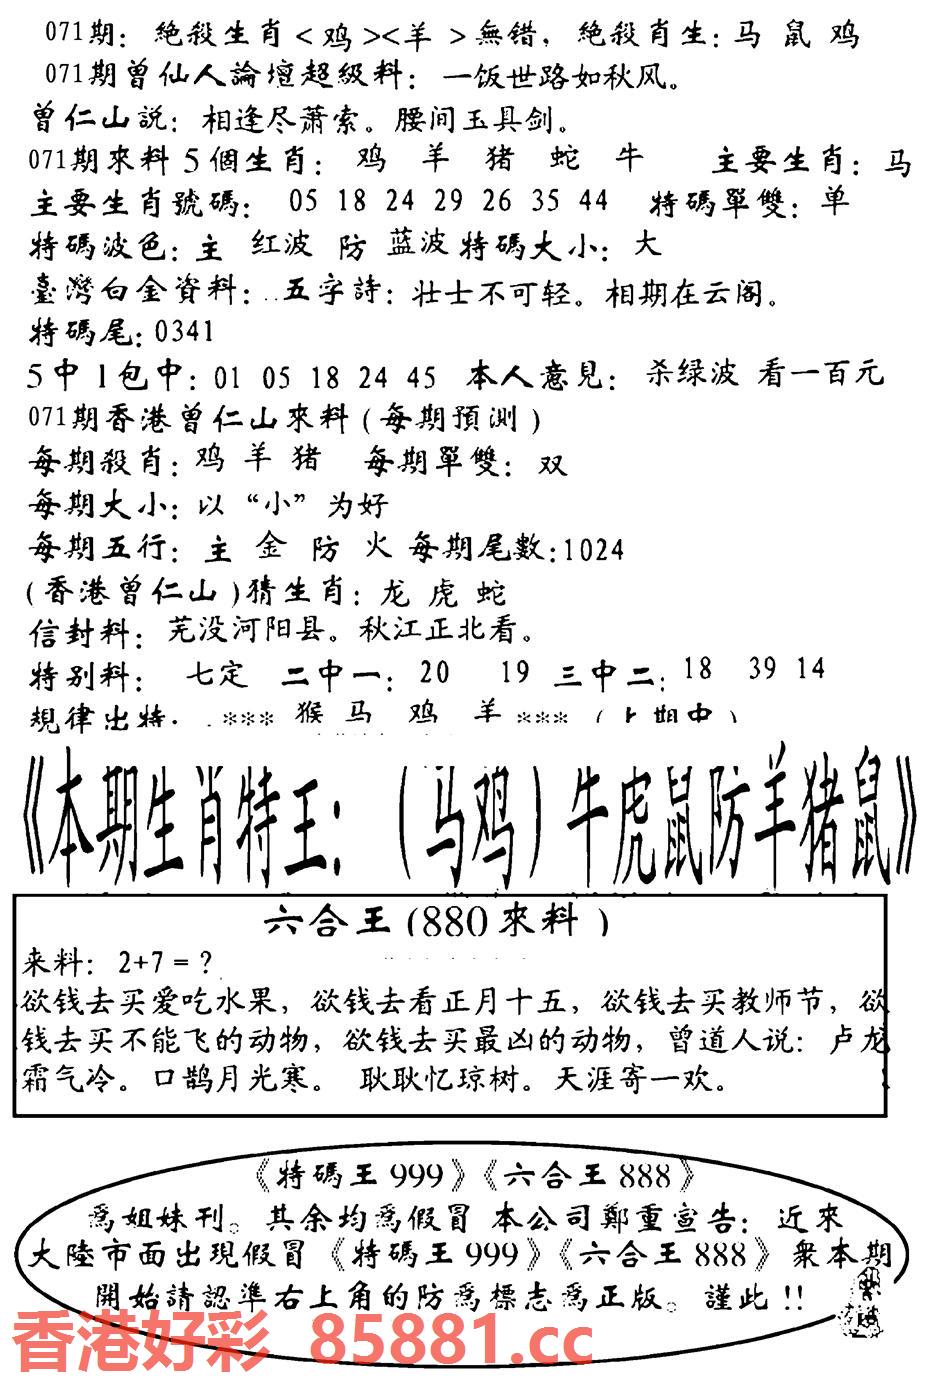 071期：绝殺生肖<鸡><羊>無错，绝殺肖生：马 鼠 鸡
071期曾仙人論壇超級料：一饭世路如秋风。
曾仁山説：相逢尽萧索。腰间玉具剑。
071期來料5個生肖：鸡 羊 猪 蛇 牛 主要生肖：马
主要生肖號碼：05 18 24 29 26 35 44 特碼單雙：单
特碼波色：主 红波 防 蓝波 特碼大小：大
臺灣白金資料：..五字詩：壮士不可轻。相期在云阁。
特碼尾：0341
5中1包中：01 05 18 24 45 本人意見：杀绿波 看一百元
071期香港曾仁山來料(每期預測)
每期殺肖：鸡 羊 猪 每期單雙：双
每期大小：以“小”为好
每期五行：主 金 防 火 每期尾數:1024
(香港曾仁山)猜生肖：龙 虎 蛇
信封料：芜没河阳县。秋江正北看。
特别料：七定 二中一：20 19 三中二：18 39 14
規律出特：***猴 马 鸡 羊***(上期中)
《本期生肖特王：(马鸡)牛虎鼠防羊猪鼠》
六合王(880來料)
来料：2+7=？
欲钱去买爱吃水果，欲钱去看正月十五，欲钱去买教师节，欲
钱去买不能飞的动物，欲钱去买最凶的动物，曾道人说：卢龙
霜气冷。口鹊月光寒。 耿耿忆琼树。天涯寄一欢。
《特碼王999》《六合王888》
爲姐妹刊。其余均爲假冒 本公司鄭重宣告：近來
大陸市面出現假冒《特碼王999》《六合王888》衆本期
開始請認準右上角的防爲標志爲正版。謹此!!
香港好彩 85881.cc